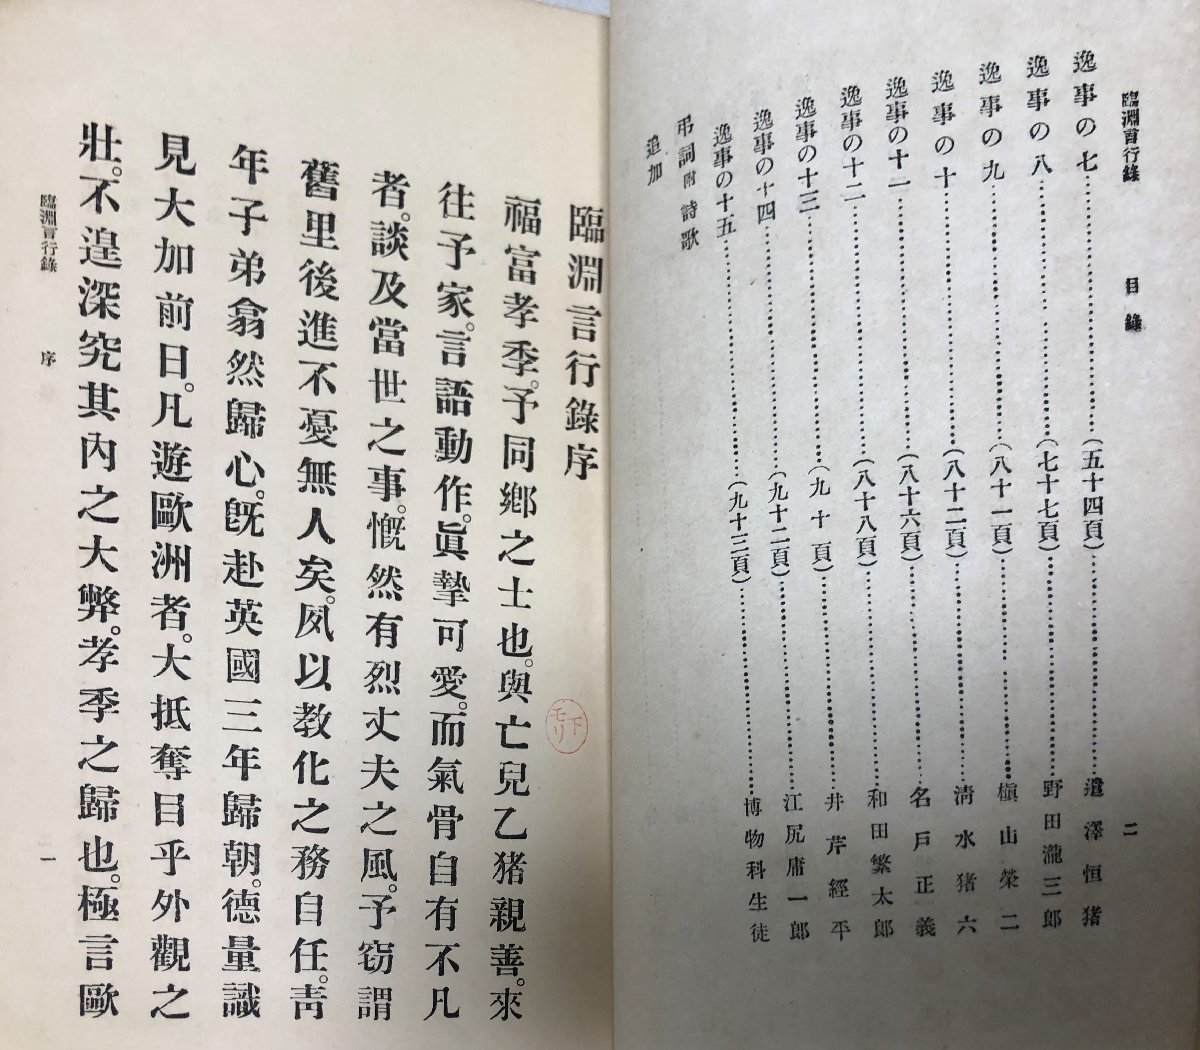 臨淵言行錄　目錄　二
逸事の七……………………(五十四頁)……………………遣澤恒猪
逸事の八……………………(七十七頁)……………………野田瀧三郎
逸事の九……………………(八十一頁)……………………槇山榮二
逸事の十……………………(八十二頁)……………………淸水猪六
逸事の十一……………………(八十六頁)……………………名戸正義
逸事の十二……………………(八十八頁)……………………和田繁太郎
逸事の十三……………………(九十頁)……………………井芹經平
逸事の十四……………………(九十二頁)……………………江尻庸一郎
逸事の十五……………………(九十三頁)……………………博物科生徒
弔詞附詩歌
追加
臨淵言行錄序
福富孝季。予同鄕之士也。與亡兒乙猪親善。來
往予家。言語動作。眞摯可愛。而氣骨自有不凡
者。談及當世之事。慨然有烈丈夫之風。予窃謂
舊里後進不憂無人矣。夙以敎化之務自任。靑
年子弟翕然歸心。旣赴英國三年歸朝。德量識
見大加前日。凡遊歐洲者。大抵奪目乎外觀之
壯。不遑深究其內之大弊。孝季之歸也。極言歐
臨淵言行錄　序　一
下モリ